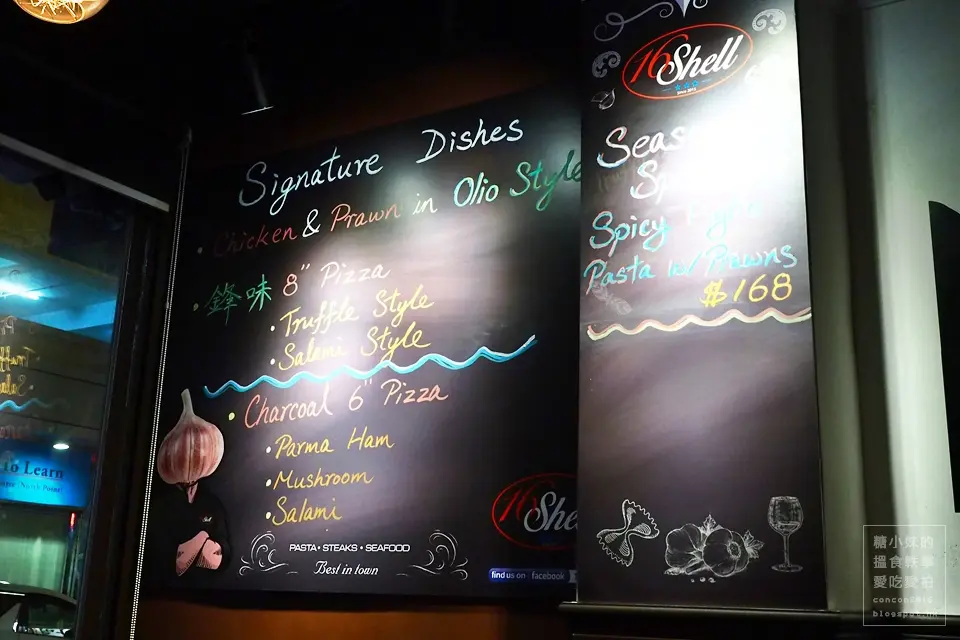 Signature Dishes
• Chicken & Prawn in Olio Style
• 鋒味 8" Pizza
• Truffle Style
• Salami Style
• Charcoal 6" Pizza
• Parma Ham
• Mushroom
• Salami
PASTA • STEAKS • SEAFOOD
Best in town
16 She
find us on facebook
16 Shell
Spicy
Pasta w/ Prawns
$168
to Learn
糖小妹的
搵食軼事
愛吃愛拍